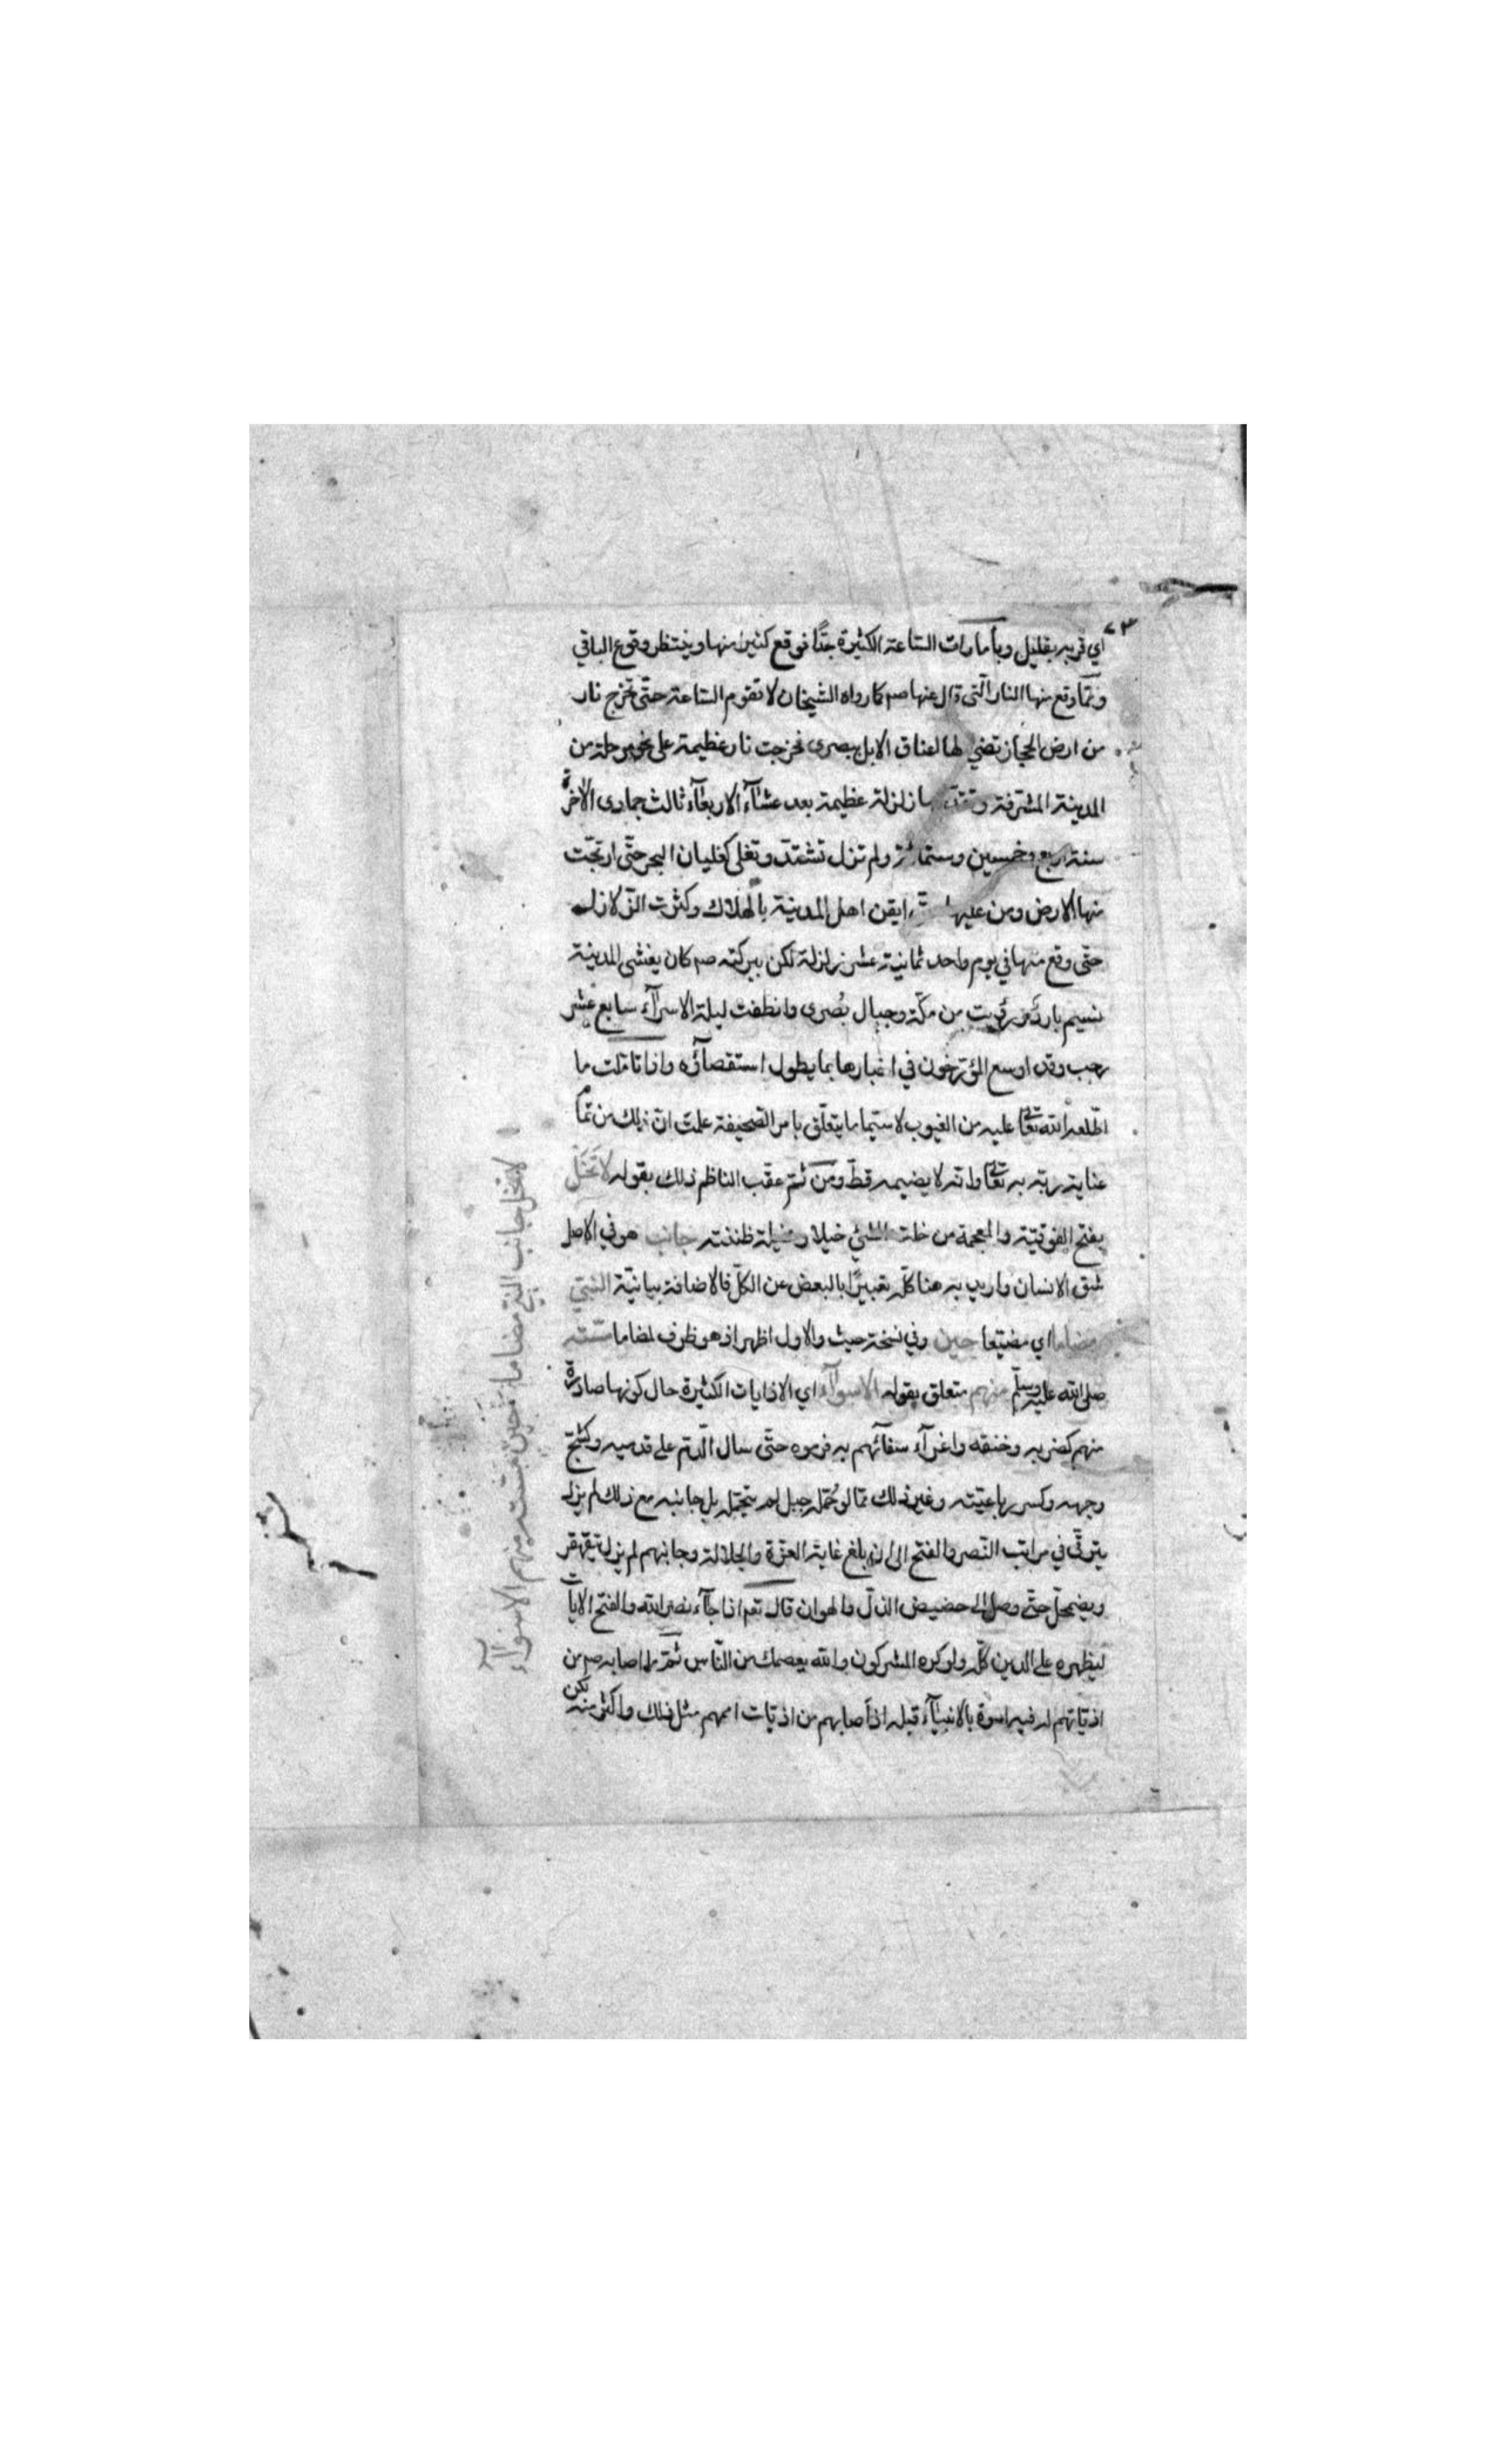 ٧٣
اي قربه بقليل وبأمارات الساعة الكثيرة جدًّا فوقع كثير منها وينتظر وقوع الباقي
وممّا وقع منها النار الّتي قال عنها صم كما رواه الشيخان لا تقوم الساعة حتّى تخرج نار
من ارض الحجاز تضئ لها اعناق الابل ببصرى فخرجت نار عظيمة على نحو مرحلة من
المدينة المشرّفة وتقدّمها زلزلة عظيمة بعد عشآء الاربعآء ثالث جمادى الاخرة
سنة اربع وخمسين وستمائة ولم تزل تشتدّ وتغلي كغليان البحر حتّى ارتجّت
منها الارض ومن عليها ايقن اهل المدينة بالهلاك وكثرت الزلازل
حتّى وقع منها في يوم واحد ثمانية عشر زلزلة لكن ببركته صم كان يغشى المدينة
نسيم بارد ورؤيت من مكّة وجبال بُصرى وانطفت ليلة الاسرآء سابع عشر
رجب وقد اوسع المؤرّخون في اخبارها بما يطول استقصآؤه واذا تامّلت ما
اطّلعه الله تعالى عليه من الغيوب لا سيّما ما يتعلّق بامر الصّحيفة علمت انّ ذلك من تمام
عناية ربّه به تعالى وانّه لا يضيمه قطّ ومن ثمّ عقّب الناظم ذلك بقوله لا تَخَلْ
بفتح الفوقيّة والمعجمة من خلت الشئ خيلا ومخيلة ظننته جانب هو في الاصل
شق الانسان واريد به هنا كلّه تعبيرًا بالبعض عن الكلّ فالاضافة بيانيّة النّبيّ
مضاما اي مضيّعا حين وفي نسخة حيث والاول اظهر اذ هو ظرف لمضاما مسّته
صلى الله عليه وسلّم منهم متعلق بقوله الاسوآء اي الاذايات الكثيرة حال كونها صادرة
منهم كضربه وخنقه واغرآء سفآئهم به فرموه حتّى سال الّدم على قدميه وكشجّ
وجهه وكسر رباعيّته وغير ذلك ممّا لو حُمّله جبل لم يتحمّله بل جانبه مع ذلك لم يزل
يترقّى في مراتب النّصر والفتح الى ان بلغ غاية العزّة والجلالة وجانبهم لم يزل يتقهقر
ويضمحلّ حتّى وصل الى حضيض الذلّ والهوان قال تعم اذا جآء نصر الله والفتح الآيات
ليظهره على الدين كلّه ولو كره المشركون والله يعصمك من النّاس ثمّ ما اصابه صم من
اذيّاتهم له فيه اسوة بالانبيآء قبله اذ اصابهم من اذيّات اممهم مثل ذلك واكثر منه لكن
لا تخل جانب النبيّ مضاما حين مسّته منهم الاسوآء